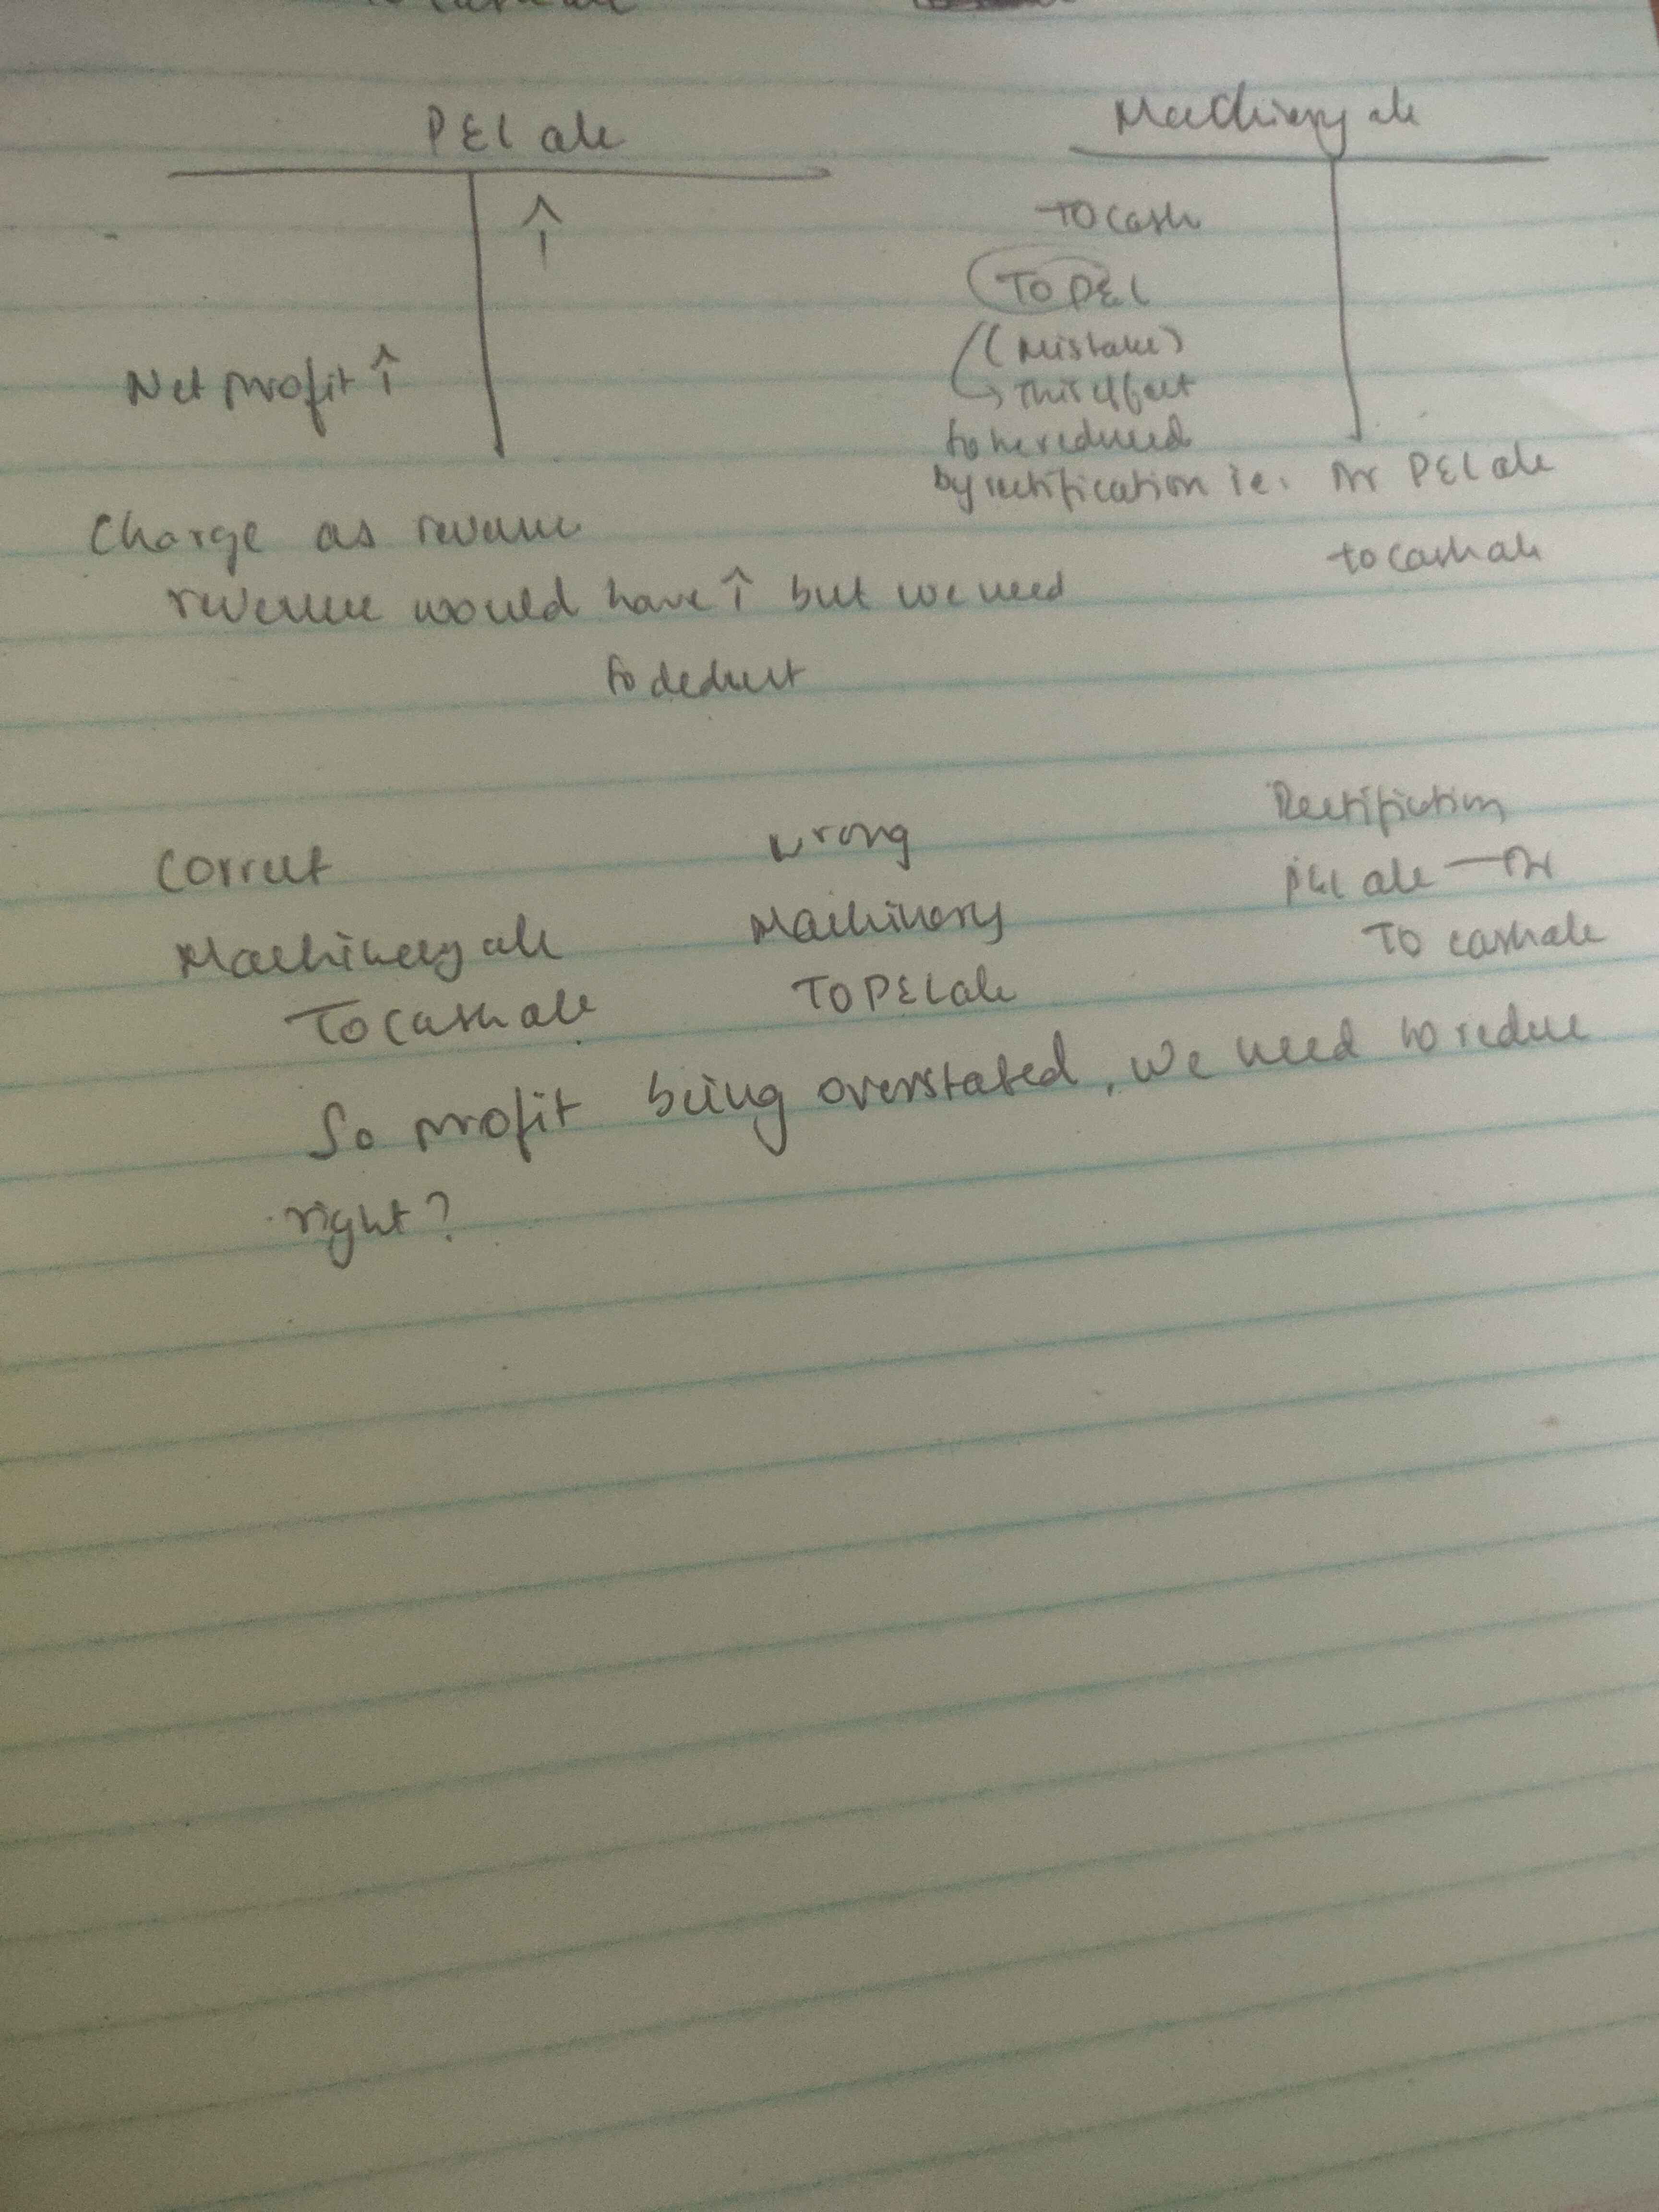 P&L a/c
Machinery a/c
↑
To cash
To P&L
(Mistake)
→ This effect
Net profit ↑
to be reduced
by rectification ie. Dr P&L a/c
to cash a/c
Charge as revenue
revenue would have ↑ but we need
to deduct
Correct
Wrong
Rectification
Machinery a/c
Machinery
P&L a/c — Dr
To cash a/c
To P&L a/c
To cash a/c
So profit being overstated, we need to reduce
right?